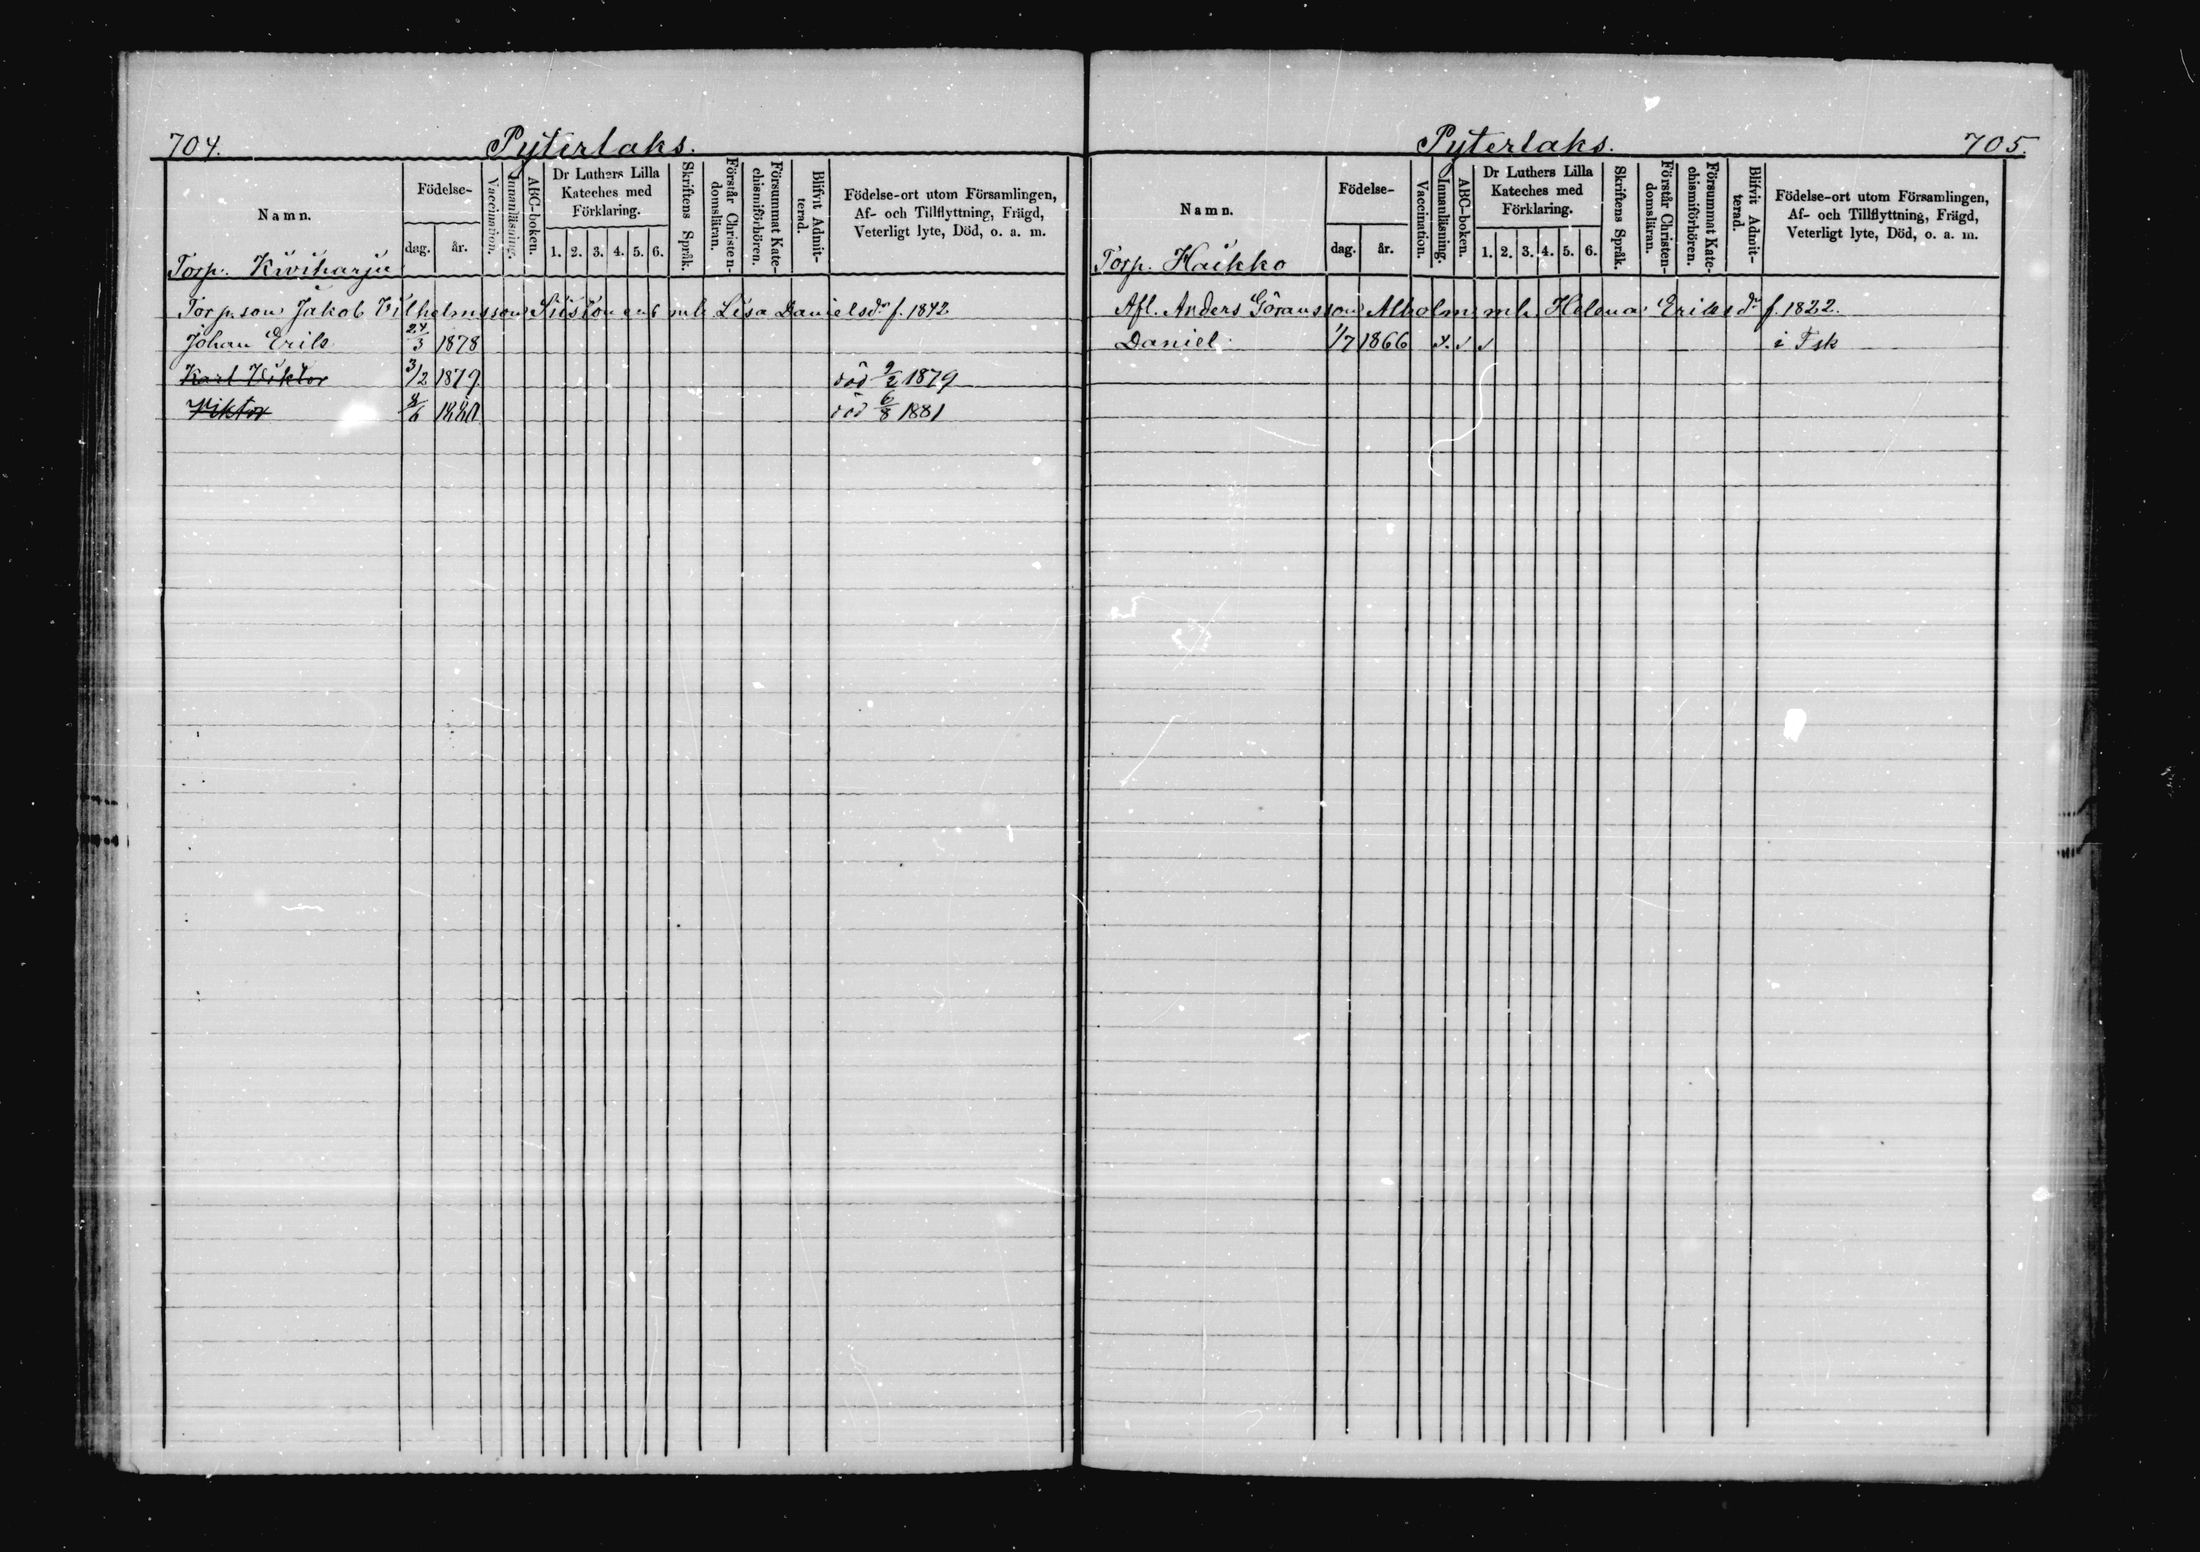 704.
Pyterlaks.
Namn.
Födelse-
dag. år.
Vaccination.
Innanläsning.
ABC-boken.
Dr Luthers Lilla
Kateches med
Förklaring.
1. 2. 3. 4. 5. 6.
Skriftens Språk.
Förstår Christen-
domsläran.
Försummat Kate-
chismiförhören.
Blifvit Admit-
terad.
Födelse-ort utom Församlingen,
Af- och Tillflyttning, Frägd,
Veterligt lyte, Död, o. a. m.
Torp. Kiviharju
Torp.son Jakob Vilhelmsson mh Lisa Danielsdr f. 1842
Johan Erik 24/3 1878
Karl Viktor 3/2 1879 död 9/2 1879
Viktor 8/6 1880 död 6/8 1881
Pyterlaks.
705.
Namn.
Födelse-
dag. år.
Vaccination.
Innanläsning.
ABC-boken.
Dr Luthers Lilla
Kateches med
Förklaring.
1. 2. 3. 4. 5. 6.
Skriftens Språk.
Förstår Christen-
domsläran.
Försummat Kate-
chismiförhören.
Blifvit Admit-
terad.
Födelse-ort utom Församlingen,
Af- och Tillflyttning, Frägd,
Veterligt lyte, Död, o. a. m.
Torp. Haikko
Afl. Anders Göransson Alholm mh. Helena Eriksdr f. 1822.
Daniel 1/7 1866 i Fsk